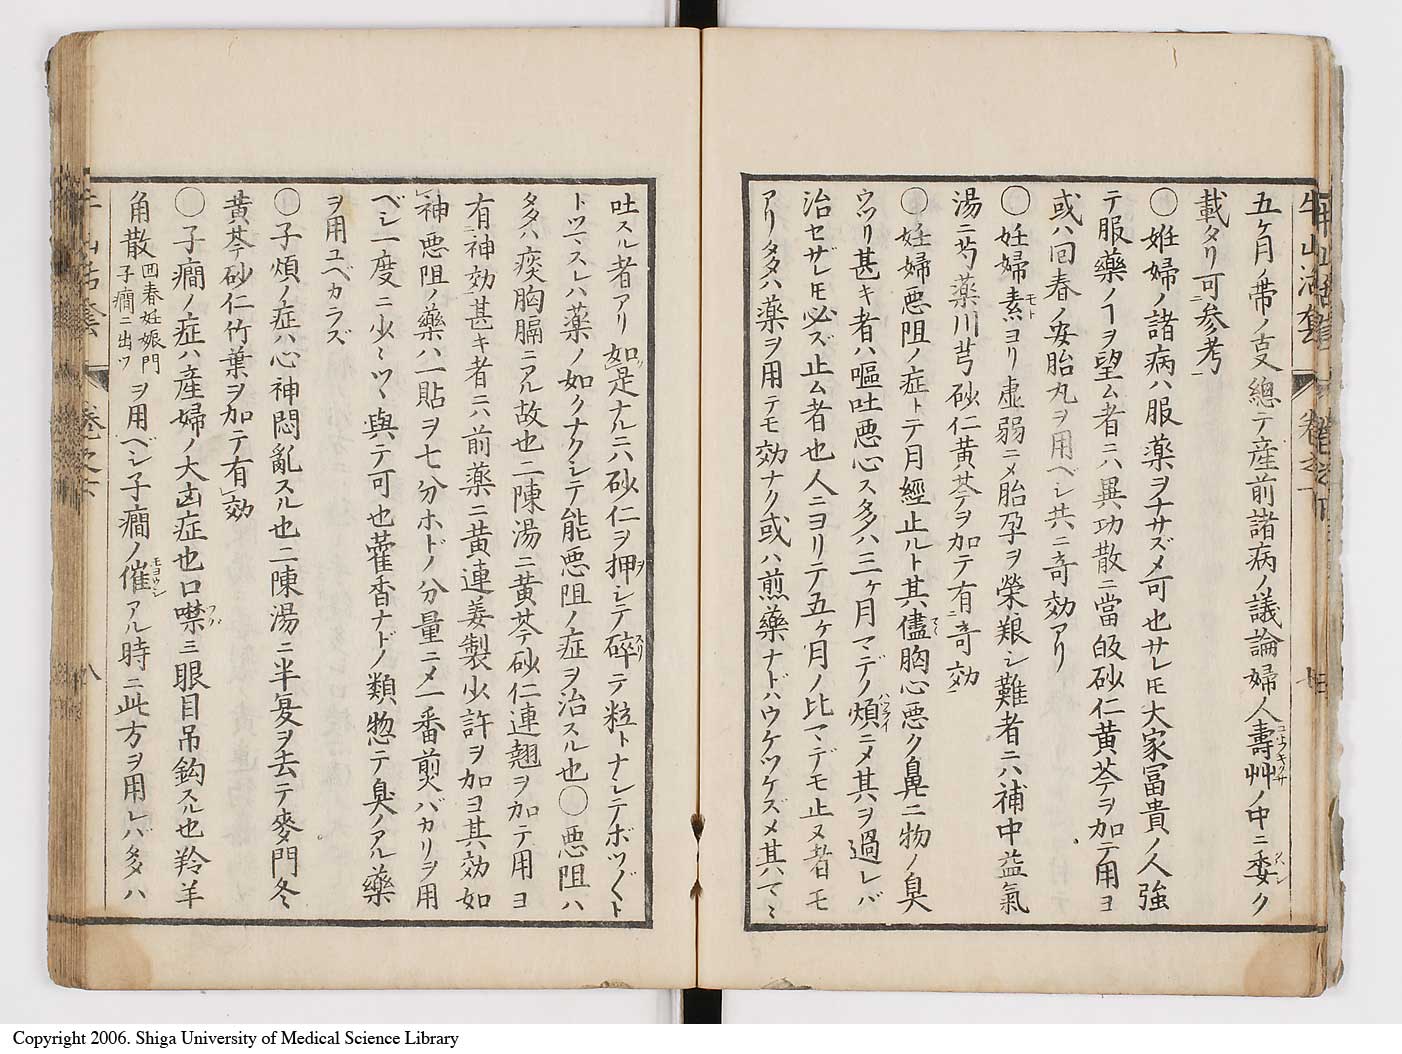 五ヶ月ノ帯ノ叓總テ産前諸病ノ議論婦人壽艸ノ中ニ委ク
載タリ可ニ参考一
〇姙婦ノ諸病ハ服薬ヲナサズメ可也サレ𪜈大家冨貴ノ人強
テ服藥ノヿヲ望ム者ニハ異功散ニ當皈砂仁黄芩ヲ加テ用ヨ
或ハ回春ノ安胎丸ヲ用ベシ共ニ竒効アリ
〇妊婦素ヨリ虚弱ニメ胎孕ヲ榮粮シ難者ニハ補中益氣
湯ニ芍薬川芎砂仁黄芩ヲ加テ有ニ竒効一
〇妊婦悪阻ノ症トテ月經止ルト其儘胸心悪ク鼻ニ物ノ臭
ウツリ甚キ者ハ嘔吐悪心ス多ハ三ヶ月マデノ煩ニメ其ヲ過レバ
治セザレ𪜈必ズ止ム者也人ニヨリテ五ヶ月ノ比マデモ止ヌ者モ
アリ多ハ薬ヲ用テモ効ナク或ハ煎藥ナドハウケツケズメ其ハテハ
吐スル者アリ如レ是ナルニハ砂仁ヲ押シテ碎テ粒トナシテボツ〱ト
トツマスレハ薬ノ如クナクシテ能悪阻ノ症ヲ治スル也〇悪阻ハ
多ハ痰胸膈ニアル故也二陳湯ニ黄芩砂仁連翹ヲ加テ用ヨ
有ニ神効一甚キ者ニハ前薬ニ黄連姜製少許ヲ加ヨ其効如
レ神悪阻ノ藥ハ一貼ヲ七分ホドノ分量ニメ一番煎バカリヲ用
ベシ一度ニ少〻ツヽ與テ可也藿香ナドノ類惣テ臭ノアル藥
ヲ用ユベカラズ
〇子煩ノ症ハ心神悶亂スル也二陳湯ニ半夏ヲ去テ麥門冬
黄芩砂仁竹葉ヲ加テ有レ効
〇子癇ノ症ハ産婦ノ大凶症也口噤ミ眼目吊鈎スル也羚羊
角散回春妊娠門子癇ニ出ツヲ用ベシ子癇ノ催アル時ニ此方ヲ用レバ多ハ
Copyright 2006. Shiga University of Medical Science Library